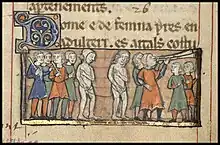 aprenements.
Home e de femna pres en
adulteri. es atals costu